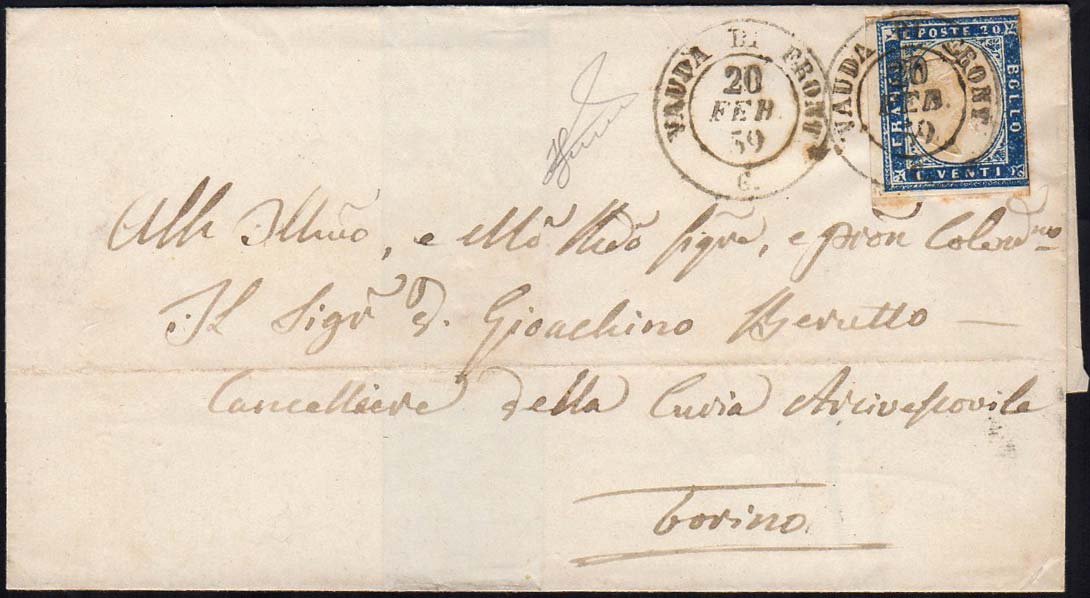 VAUDA DI FRONT
20
FEB.
59
C.
VAUDA DI FRONT
20
FEB.
59.
C.
POSTE 20
BOLLO
C. VENTI
FRANCO
All' Illmõ, e Mtõ Rdõ Sigre, e pron Colendmo
Il Sigr D. Gioachino Berutto —
Cancelliere della Curia Arcivescovile
Torino